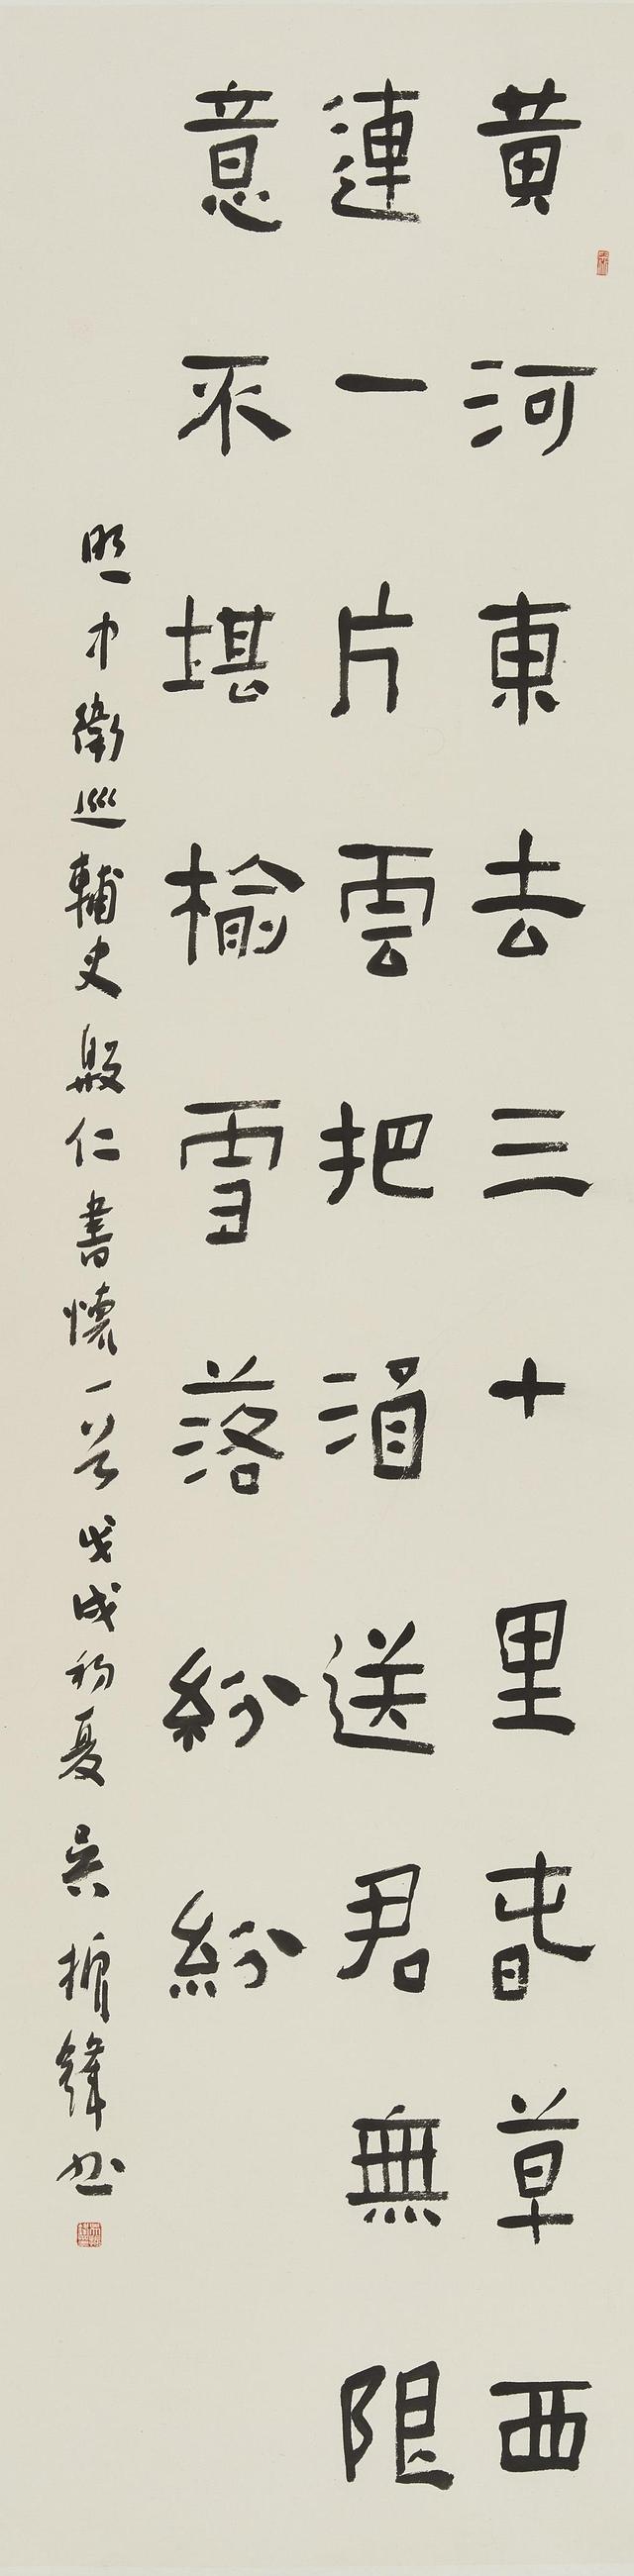 黄河東去三十里春草西
連一片雲把酒送君無限
意不堪榆雪落紛紛
明中衛巡輔史殷仁書懷一首戊戌初夏吳振鋒书